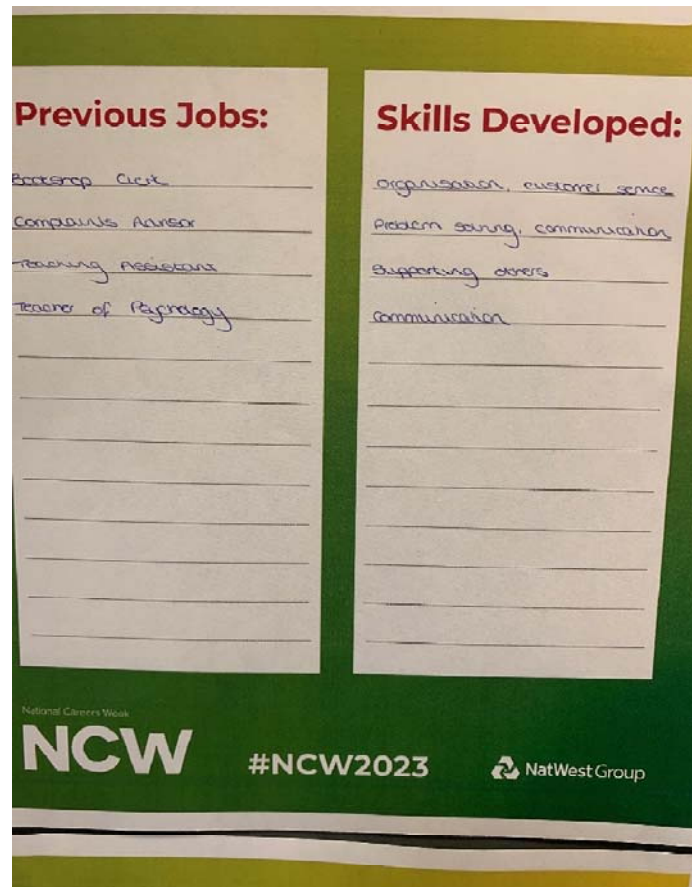 Previous Jobs:
Clerk
Complaints Advisor
Teaching Assistant
Teacher of Psychology
Skills Developed:
organisation, customer service
Problem solving, communication
Supporting others
communication
National Careers Week
NCW
#NCW2023
NatWest Group